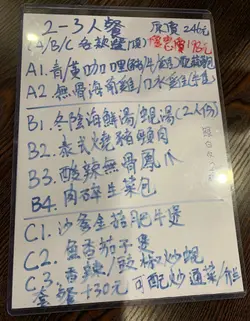 2-3人餐 原價246元
(A/B/C各款選1項) 優惠價198元
A1. 青/黃咖喱
A2. 無骨海南雞/口水雞
B1. 冬陰海鮮湯/蜆湯(2人份)
B2. 泰式燒豬頸肉
B3. 酸辣無骨鳳爪
B4. 肉碎生菜包
C1. 沙爹金菇肥牛煲
C2. 魚香茄子煲
C3. 香辣/豉椒炒蜆
套餐+30元可配炒通菜/